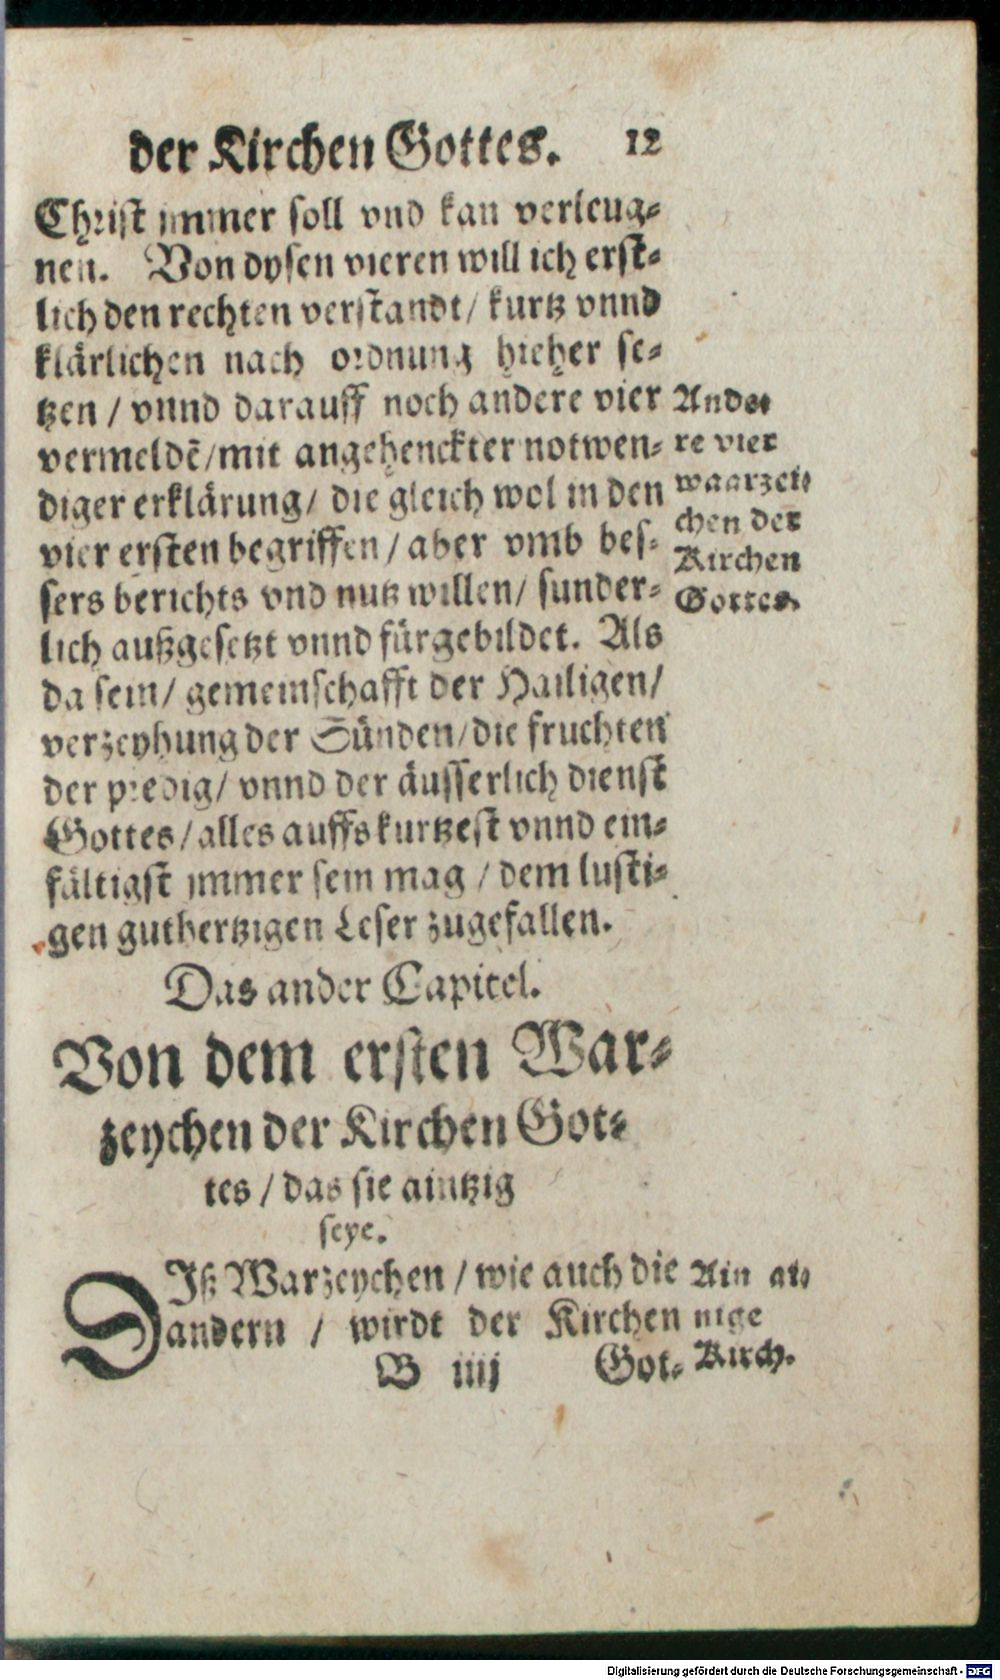 der Kirchen Gottes. 12
Christ jmmer soll vnd kan verleug-
nen. Von dysen vieren will ich erst-
lich den rechten verstandt / kurtz vnnd
klärlichen nach ordnung hieher se-
tzen / vnnd darauff noch andere vier
vermeldẽ / mit angehenckter notwen-
diger erklärung / die gleich wol in den
vier ersten begriffen / aber vmb bes-
sers berichts vnd nutz willen / sunder-
lich außgesetzt vnnd fürgebildet. Als
da sein / gemeinschafft der Hailigen /
verzeyhung der Sünden / die fruchten
der predig / vnnd der äusserlich dienst
Gottes / alles auffs kurtzest vnnd ein-
fältigst jmmer sein mag / dem lusti-
gen guthertzigen Leser zugefallen.
Ande-
re vier
waarzei-
chen der
Kirchen
Gottes.
Das ander Capitel.
Von dem ersten War-
zeychen der Kirchen Got-
tes / das sie aintzig
seye.
DIß Warzeychen / wie auch die
andern / wirdt der Kirchen
Ain ai-
nige
Kirch.
B iiij Got-
Digitalisierung gefördert durch die Deutsche Forschungsgemeinschaft - DFG